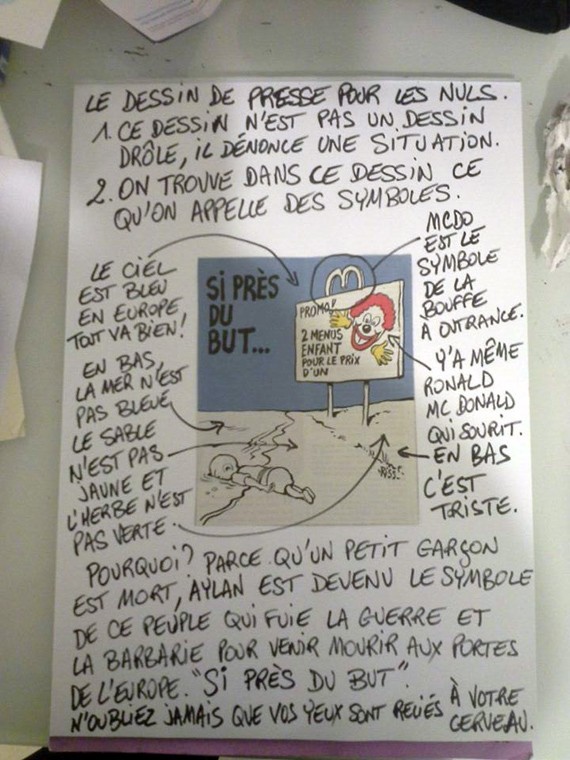 LE DESSIN DE PRESSE POUR LES NULS.
1. CE DESSIN N'EST PAS UN DESSIN
DRÔLE, IL DÉNONCE UNE SITUATION.
2. ON TROUVE DANS CE DESSIN CE
QU'ON APPELLE DES SYMBOLES.
LE CIEL
EST BLEU
EN EUROPE
TOUT VA BIEN!
EN BAS,
LA MER N'EST
PAS BLEUE
LE SABLE
N'EST PAS
JAUNE ET
L'HERBE N'EST
PAS VERTE.
SI PRÈS
DU
BUT...
M
PROMO!
2 MENUS
ENFANT
POUR LE PRIX
D'UN
MCDO
EST LE
SYMBOLE
DE LA
BOUFFE
À OUTRANCE.
Y'A MÊME
RONALD
MC DONALD
QUI SOURIT.
EN BAS
C'EST
TRISTE.
POURQUOI? PARCE QU'UN PETIT GARÇON
EST MORT, AYLAN EST DEVENU LE SYMBOLE
DE CE PEUPLE QUI FUIE LA GUERRE ET
LA BARBARIE POUR VENIR MOURIR AUX PORTES
DE L'EUROPE. "SI PRÈS DU BUT".
N'OUBLIEZ JAMAIS QUE VOS YEUX SONT RELIÉS À VOTRE
CERVEAU.